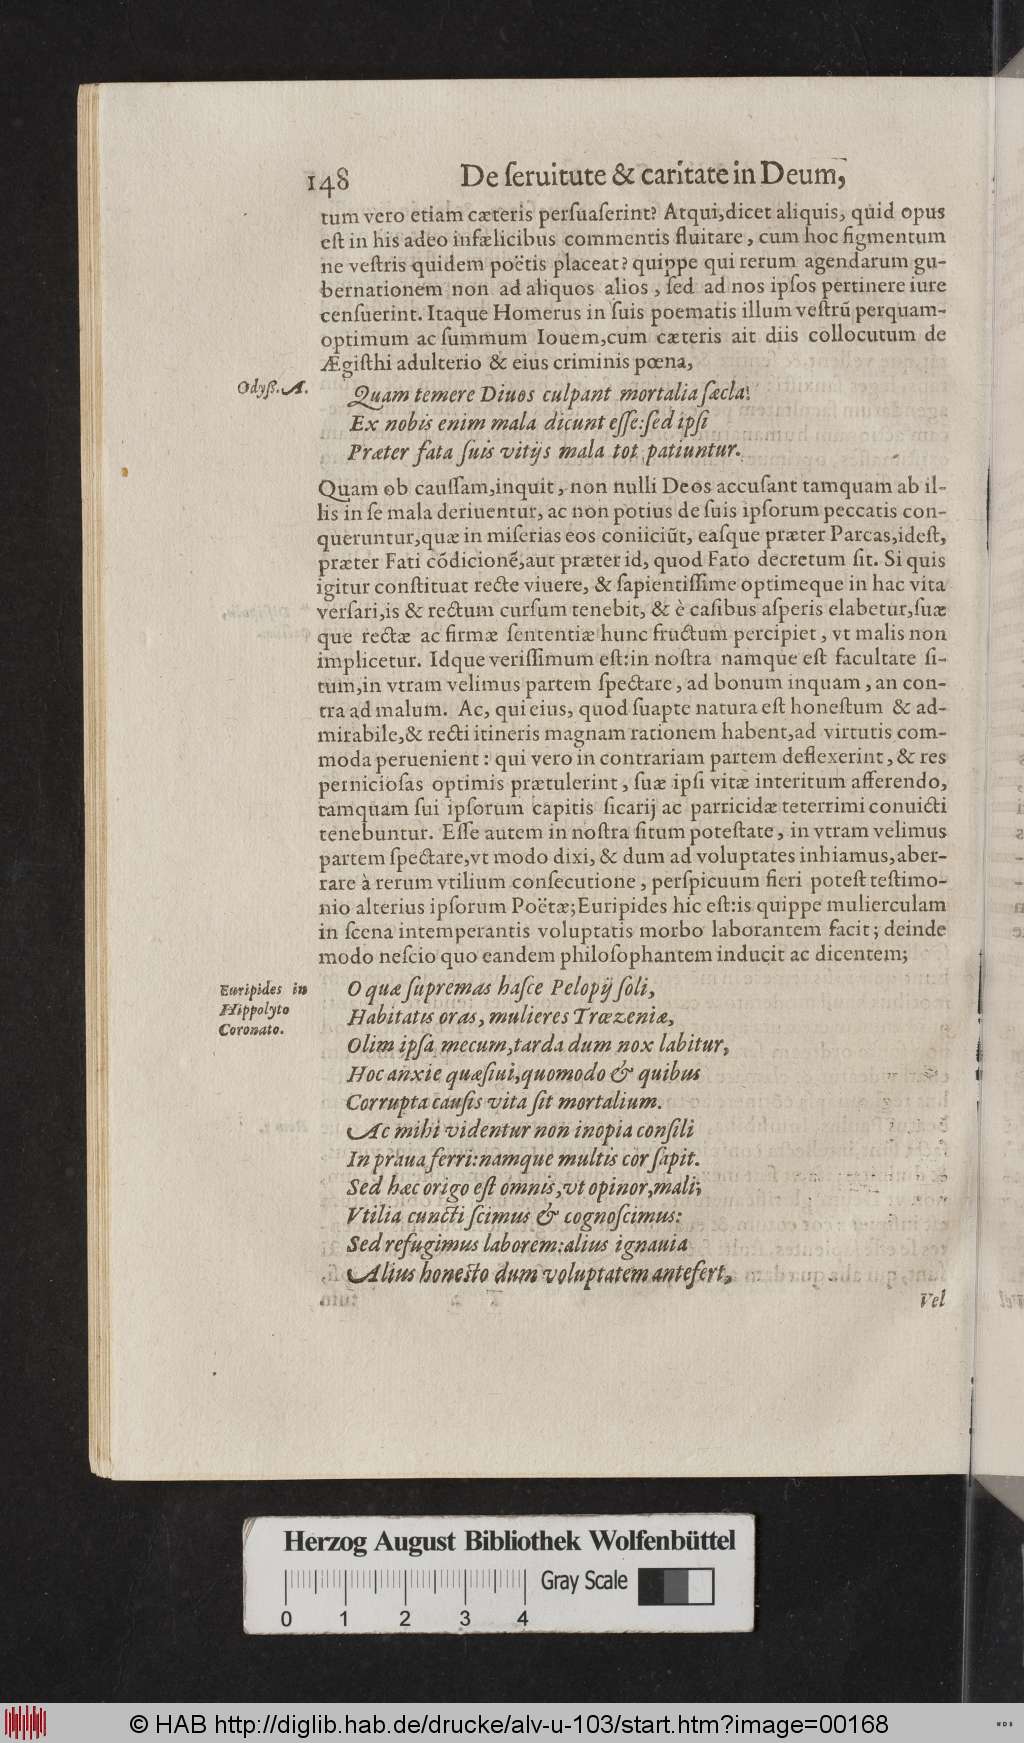 148 De ſeruitute & caritate in Deum,
tum vero etiam cæteris perſuaſerint? Atqui,dicet aliquis, quid opus
eſt in his adeo infælicibus commentis fluitare, cum hoc figmentum
ne veſtris quidem poëtis placeat? quippe qui rerum agendarum gu-
bernationem non ad aliquos alios, ſed ad nos ipſos pertinere iure
cenſuerint. Itaque Homerus in ſuis poematis illum veſtrũ perquam-
optimum ac ſummum Iouem,cum cæteris ait diis collocutum de
Ægiſthi adulterio & eius criminis pœna,
Odyß. A.
Quam temere Diuos culpant mortalia ſæcla!
Ex nobis enim mala dicunt eſſe:ſed ipſi
Præter fata ſuis vitijs mala tot patiuntur.
Quam ob cauſſam,inquit, non nulli Deos accuſant tamquam ab il-
lis in ſe mala deriuentur, ac non potius de ſuis ipſorum peccatis con-
queruntur,quæ in miſerias eos coniiciũt, eaſque præter Parcas,ideſt,
præter Fati cõdicionẽ,aut præter id, quod Fato decretum ſit. Si quis
igitur conſtituat recte viuere, & ſapientiſſime optimeque in hac vita
verſari,is & rectum curſum tenebit, & è caſibus aſperis elabetur,ſuæ
que rectæ ac firmæ ſententiæ hunc fructum percipiet, vt malis non
implicetur. Idque veriſſimum eſt:in noſtra namque eſt facultate ſi-
tum,in vtram velimus partem ſpectare, ad bonum inquam, an con-
tra ad malum. Ac, qui eius, quod ſuapte natura eſt honeſtum & ad-
mirabile,& recti itineris magnam rationem habent,ad virtutis com-
moda peruenient: qui vero in contrariam partem deflexerint, & res
pernicioſas optimis prætulerint, ſuæ ipſi vitæ interitum afferendo,
tamquam ſui ipſorum capitis ſicarij ac parricidæ teterrimi conuicti
tenebuntur. Eſſe autem in noſtra ſitum poteſtate, in vtram velimus
partem ſpectare,vt modo dixi, & dum ad voluptates inhiamus,aber-
rare à rerum vtilium conſecutione, perſpicuum fieri poteſt teſtimo-
nio alterius ipſorum Poëtæ;Euripides hic eſt:is quippe mulierculam
in ſcena intemperantis voluptatis morbo laborantem facit; deinde
modo neſcio quo eandem philoſophantem inducit ac dicentem;
Euripides in
Hippolyto
Coronato.
O quæ ſupremas haſce Pelopij ſoli,
Habitatis oras, mulieres Trœzeniæ,
Olim ipſa mecum,tarda dum nox labitur,
Hoc anxie quæſiui,quomodo & quibus
Corrupta cauſis vita ſit mortalium.
Ac mihi videntur non inopia conſili
In praua ferri:namque multis cor ſapit.
Sed hæc origo eſt omnis,vt opinor,mali;
Vtilia cuncti ſcimus & cognoſcimus:
Sed refugimus laborem:alius ignauia
Alius honeſto dum voluptatem antefert,
Vel
Herzog August Bibliothek Wolfenbüttel
Gray Scale
0 1 2 3 4
© HAB http://diglib.hab.de/drucke/alv-u-103/start.htm?image=00168